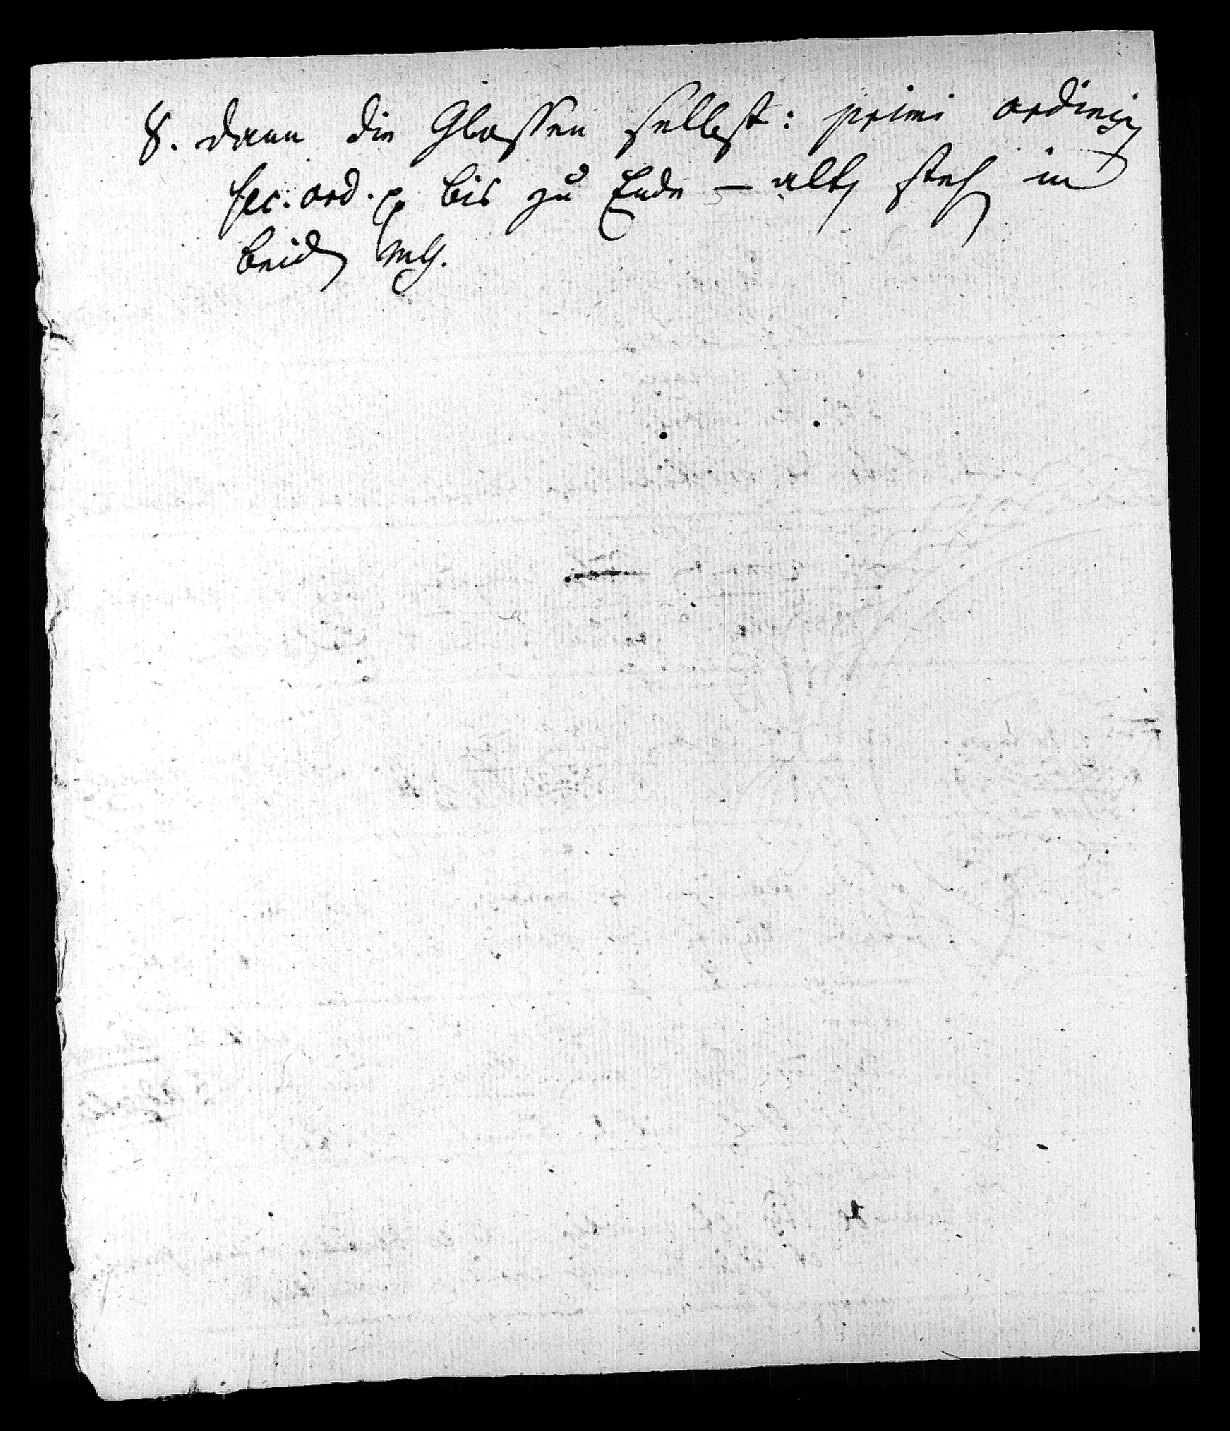 8. dann die Glossen selbst: primi ordinis
sec. ord. p bis zu Ende – alles steht in
beiden Mss.